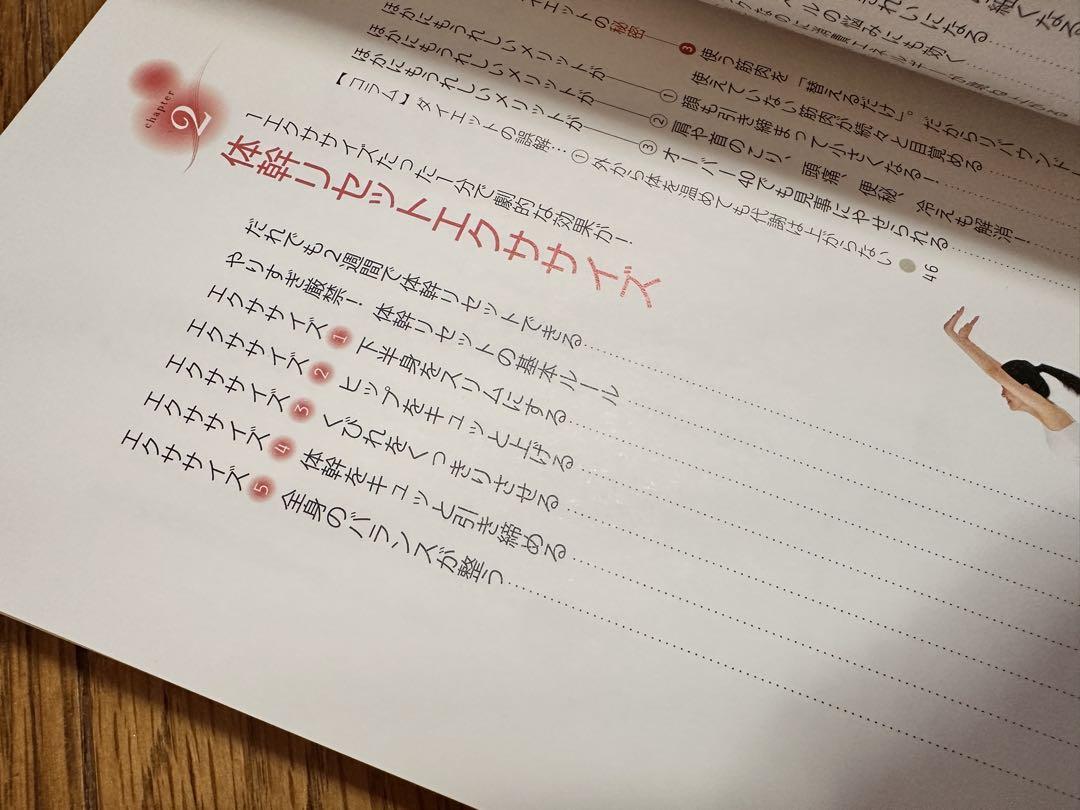 細くなる
れいになる
ベルの悩みにも効く
エットの秘密 ❸ 使う筋肉を「替えるだけ」。だからリバウンド
使えていない筋肉が続々と目覚める
ほかにもうれしいメリットが ① 顔も引き締まって小さくなる!
ほかにもうれしいメリットが ② 肩や首のこり、頭痛、便秘、冷えも解消!
ほかにもうれしいメリットが ③ オーバー40でも見事にやせられる
【コラム】ダイエットの誤解… ① 外から体を温めても代謝は上がらない ● 46
46
chapter 2
1エクササイズたった1分で劇的な効果が!
体幹リセットエクササイズ
だれでも2週間で体幹リセットできる
やりすぎ厳禁! 体幹リセットの基本ルール
エクササイズ 1 下半身をスリムにする
エクササイズ 2 ヒップをキュッと上げる
エクササイズ 3 くびれをくっきりさせる
エクササイズ 4 体幹をキュッと引き締める
エクササイズ 5 全身のバランスが整う